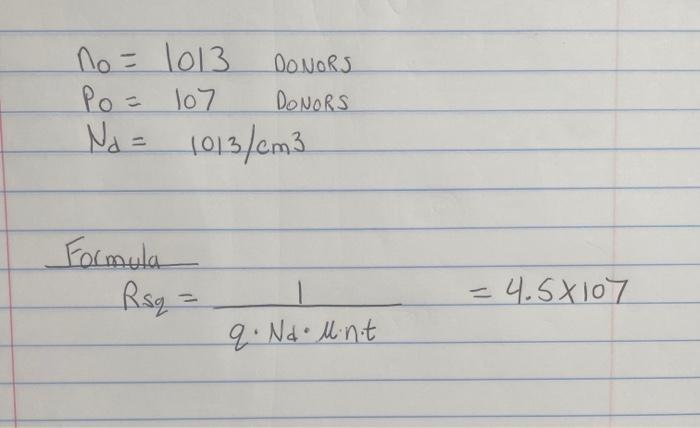 no = 1013 DONORS
Po = 107 DONORS
Nd = 1013/cm3
Formula
Rsq = 1 / q · Nd · μ·n·t = 4.5X107